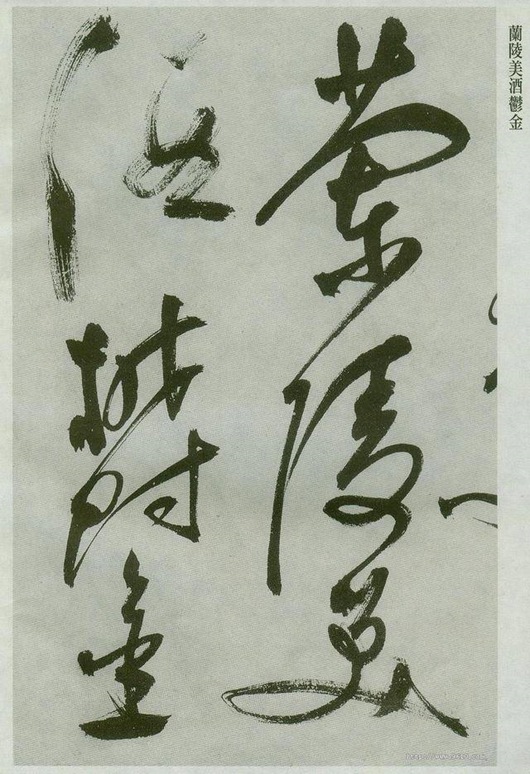 蘭陵美酒鬱金
蘭陵美
酒鬱金